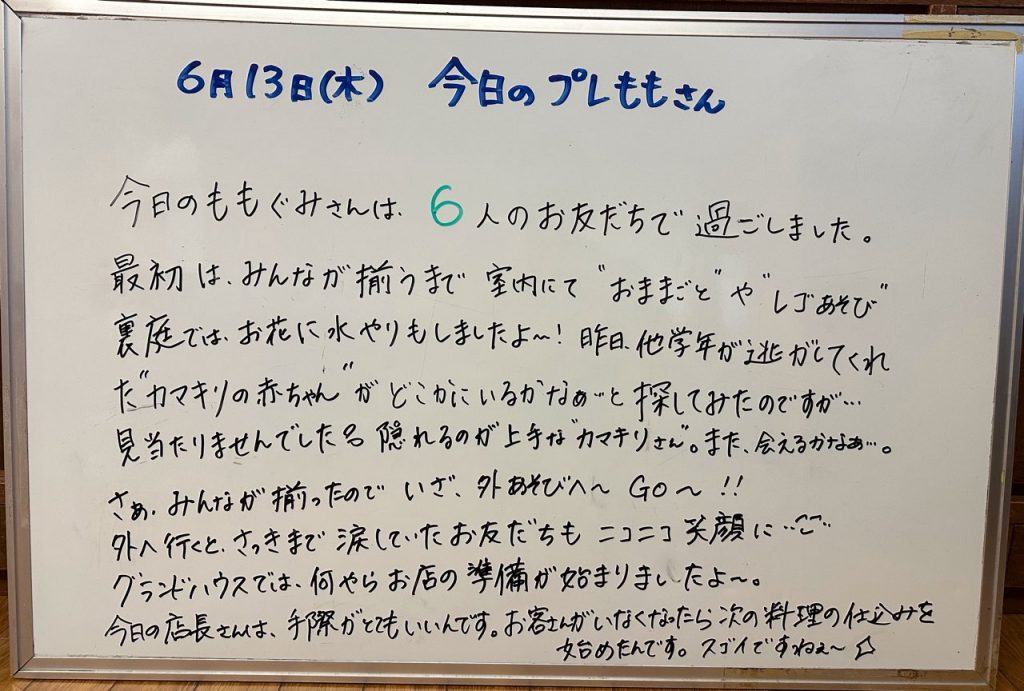 6月13日(木) 今日のプレももさん
今日のももぐみさんは、6人のお友だちで過ごしました。
最初は、みんなが揃うまで室内にて"おままごと"や"レゴあそび"
裏庭では、お花に水やりもしましたよ〜! 昨日、他学年が逃がしてくれ
た"カマキリの赤ちゃん"がどこかにいるかなぁ…と探してみたのですが…
見当たりませんでした。隠れるのが上手な"カマキリさん"。また、会えるかなぁ…。
さぁ、みんなが揃ったのでいざ、外あそびへ〜 GO〜!!
外へ行くと、さっきまで涙していたお友だちもニコニコ笑顔に…
グランドハウスでは、何やらお店の準備が始まりまいたよ〜。
今日の店長さんは、手際がとてもいいんです。お客さんがいなくなったら次の料理の仕込みを
始めたんです。スゴイですねぇ〜☆